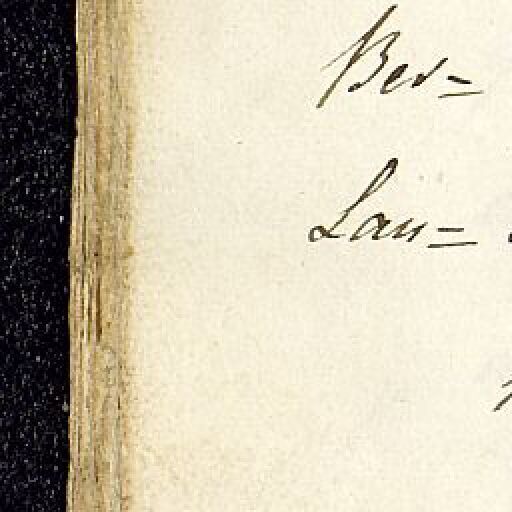 Ber=
Lau=